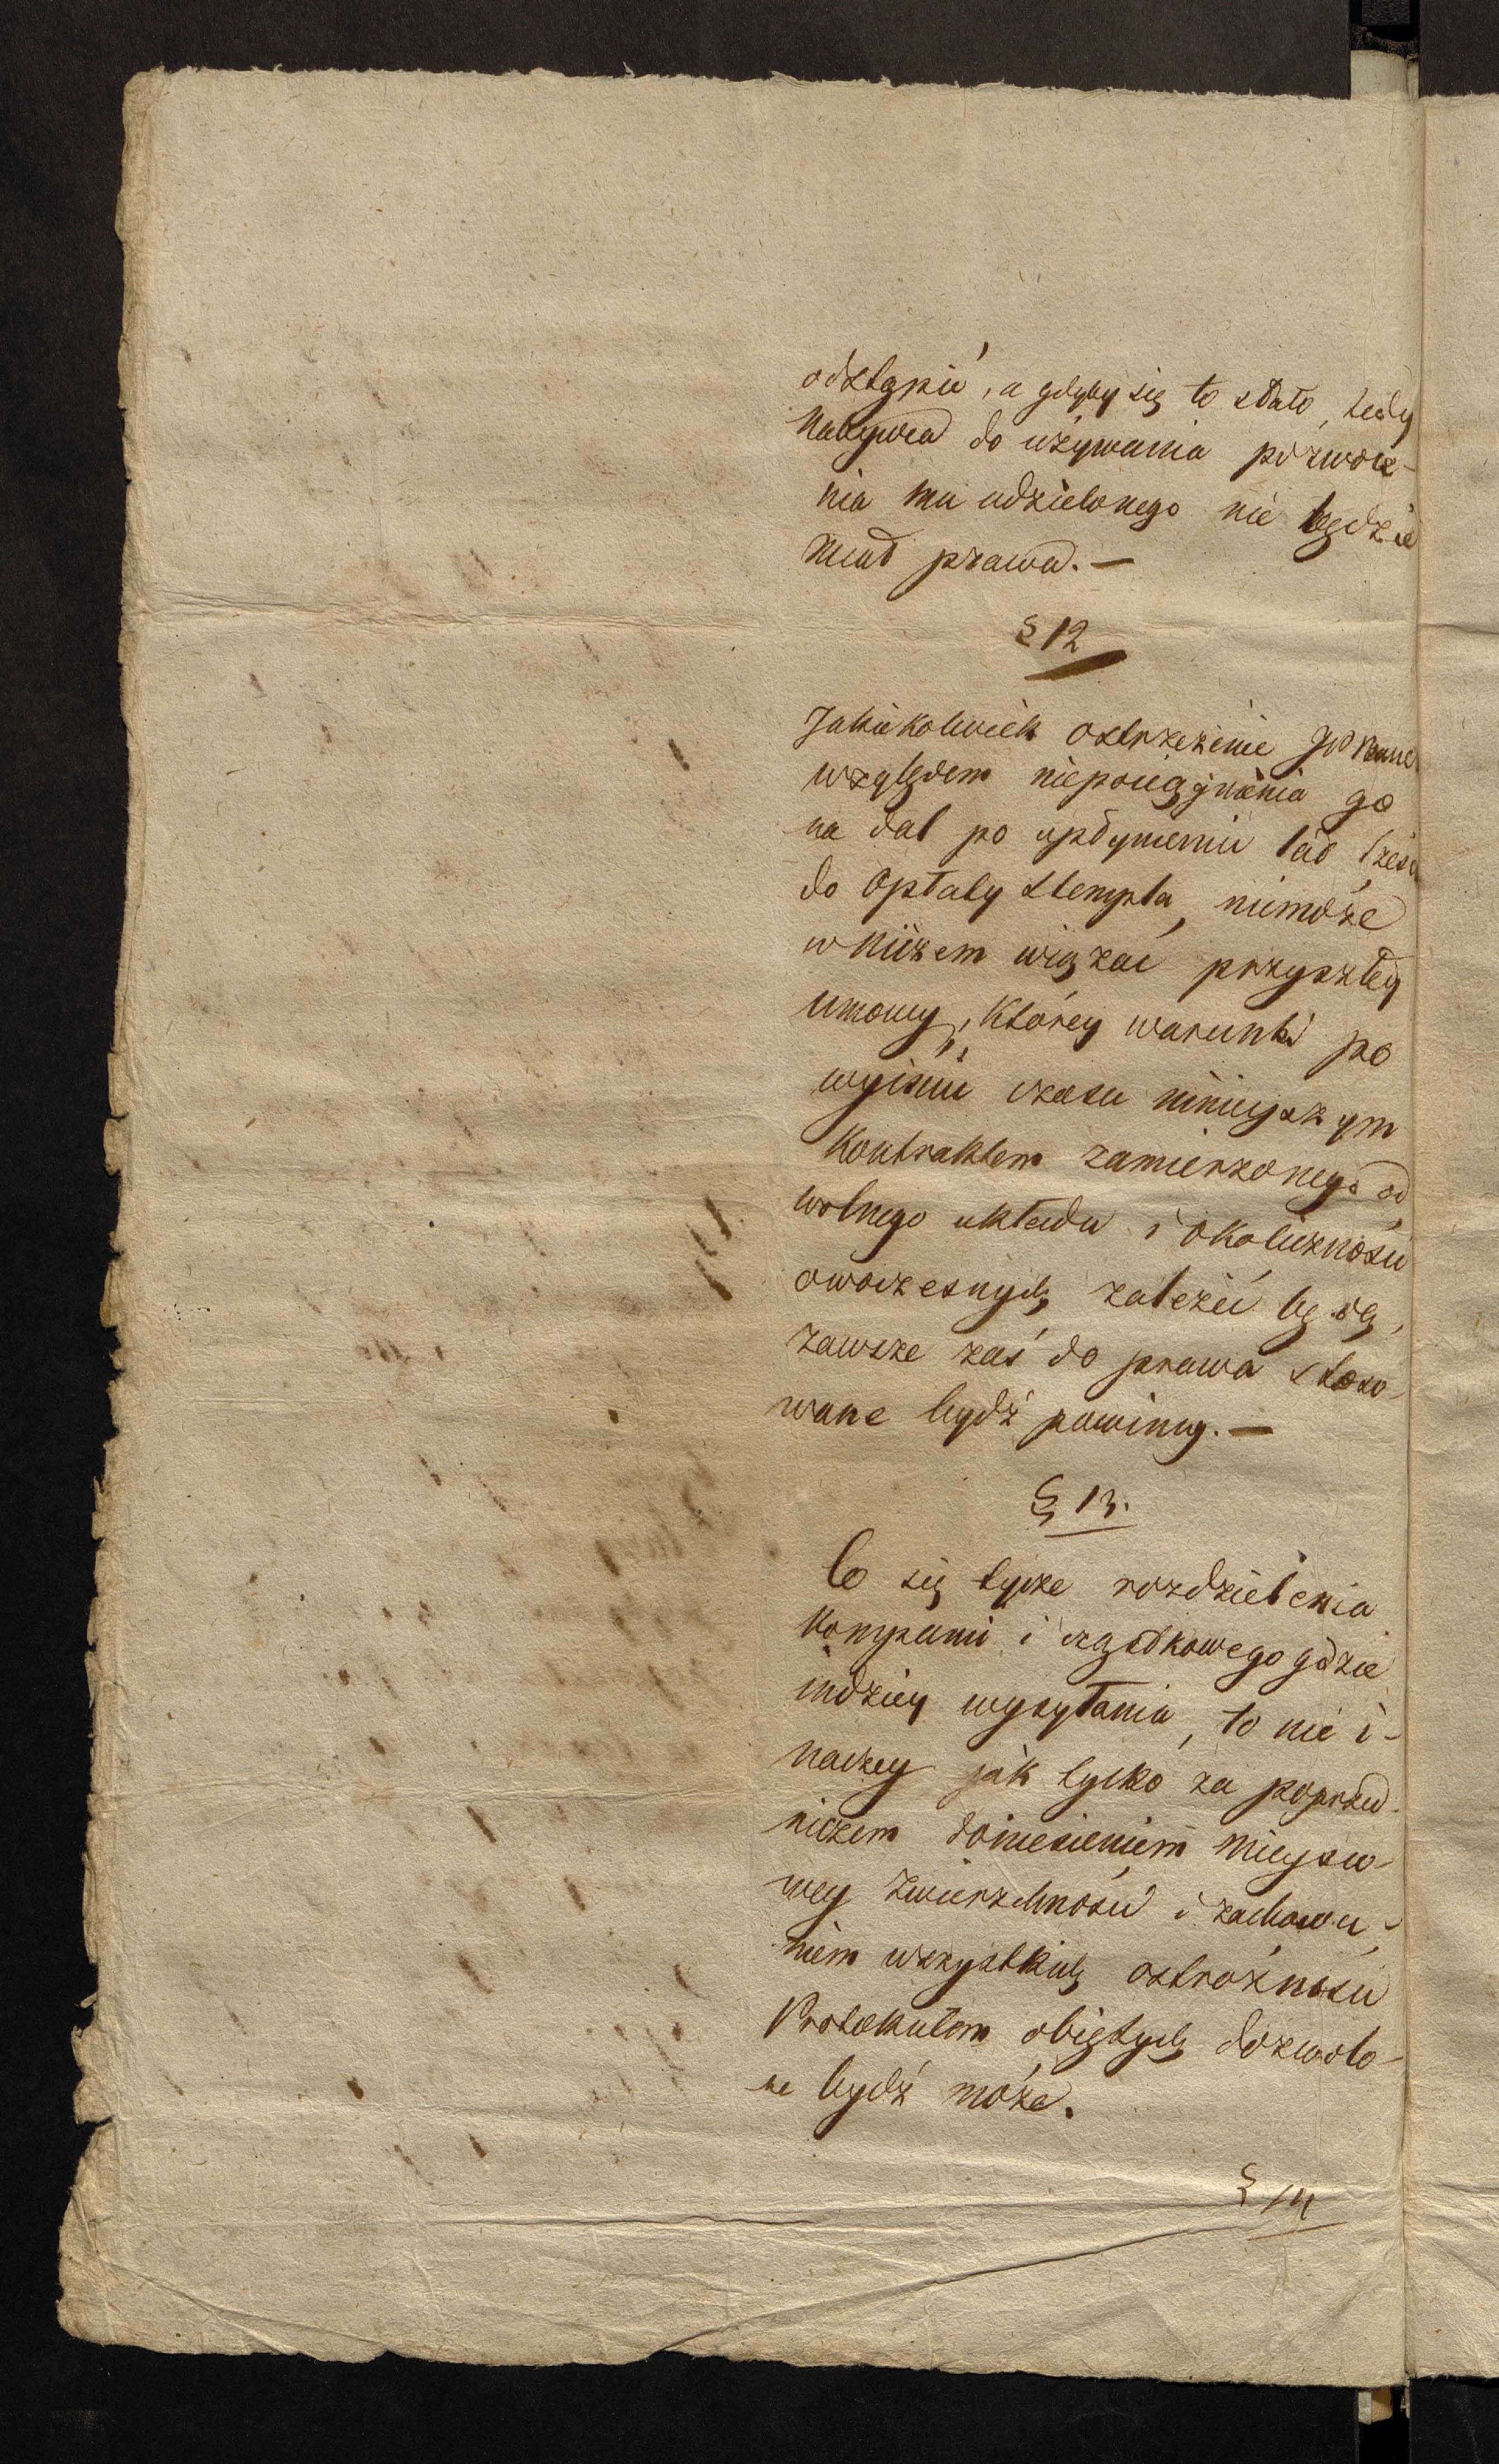 odstąpić, a gdyby się to stało, tedy
Nabywca do używania pozwole-
nia mu udzielonego nie będzie
miał prawa. —
§ 12
Jakiekolwiek ostrzeżenie JP
względem niepociągnienia go
na dal po upłynieniu lat trzech
do opłaty stempla, niemoże
w niczem wiązać przyszłey
umowy, którey warunki po
wyiściu czasu ninieyszym
Kontraktem zamierzonego od
wolnego układu i okoliczności
owoczesnych zależeć będą,
zawsze zaś do prawa stoso-
wane bydź powinny. —
§ 13.
Co się tycze rozdzielenia
Kompanii i cząstkowego gdzie
indziey wysyłania, to nie i-
naczey jak tylko za poprzed-
niczem doniesieniem mieysco-
wey Zwierzchności i zachowa-
niem wszystkich ostrożności
Protokułem obiętych dozwolo-
ne bydź może.
§ 14